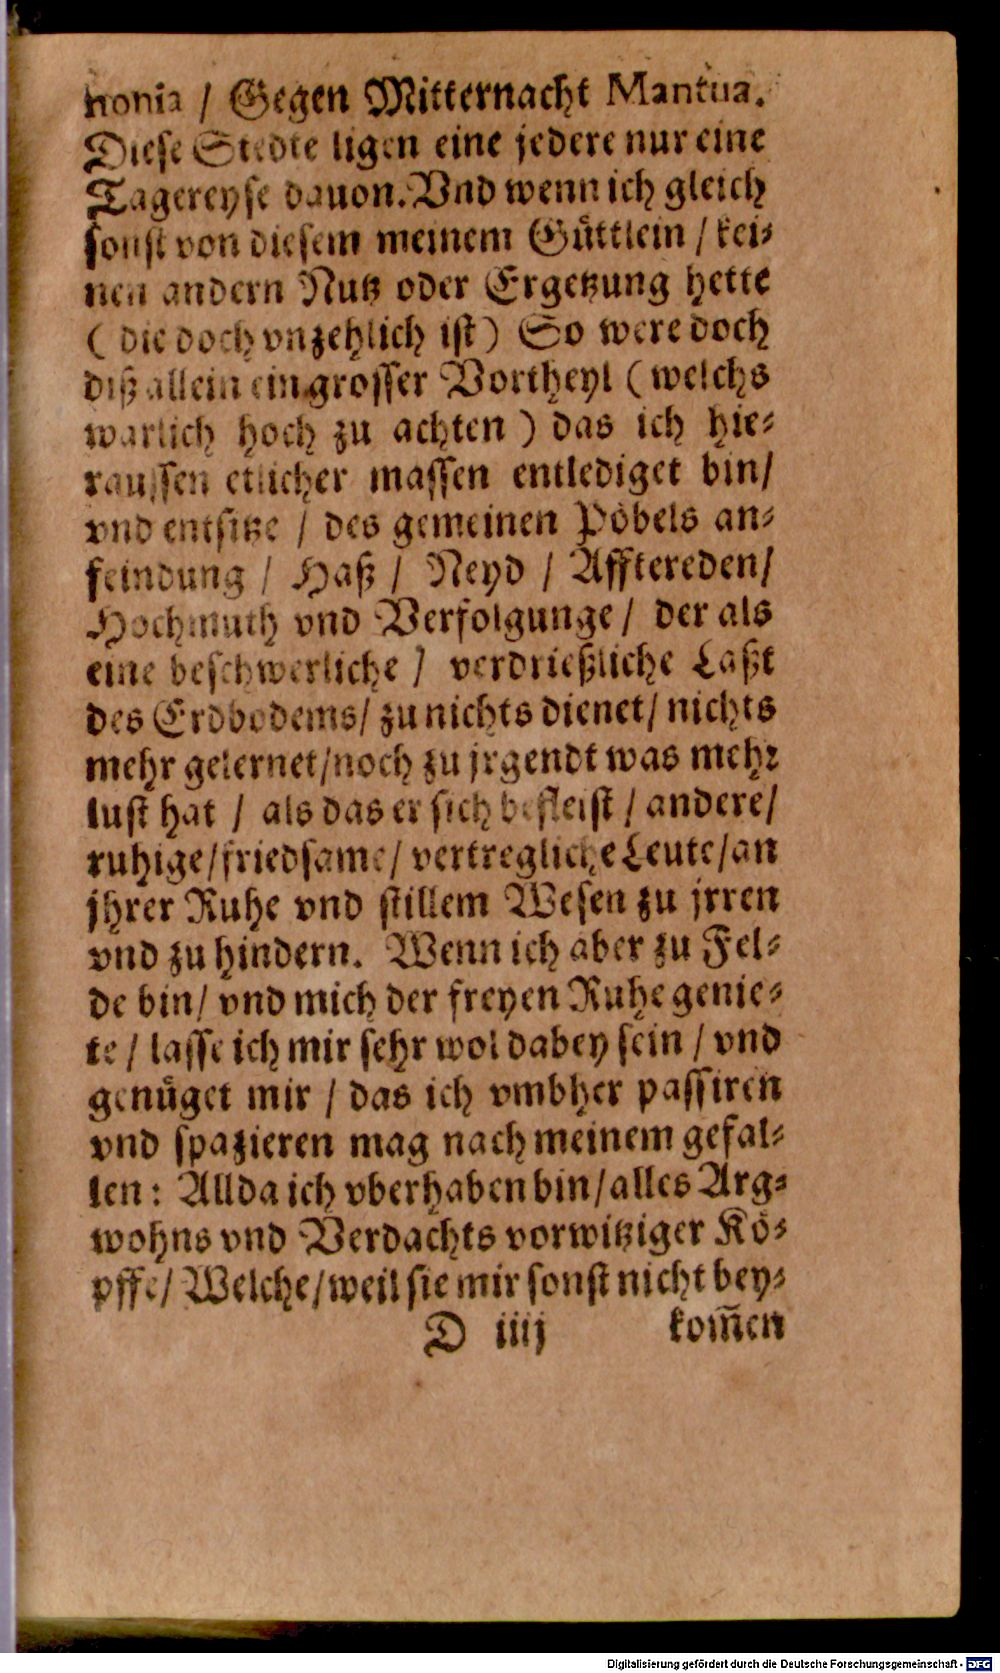 nonia / Gegen Mitternacht Mantua.
Diese Stedte ligen eine jedere nur eine
Tagereyse dauon. Vnd wenn ich gleich
sonst von diesem meinem Guͤttlein / kei⸗
nen andern Nutz oder Ergetzung hette
( die doch vnzehlich ist ) So were doch
diß allein ein grosser Vortheyl ( welchs
warlich hoch zu achten ) das ich hie⸗
raussen etlicher massen entlediget bin/
vnd entsitze / des gemeinen Poͤbels an⸗
feindung / Haß / Neyd / Affktereden/
Hochmuth vnd Verfolgunge / der als
eine beschwerliche / verdrießliche Laßt
des Erdbodems/ zu nichts dienet/ nichts
mehr gelernet/noch zu jrgendt was mehr
lust hat / als das er sich befleist / andere/
ruhige/friedsame/ vertregliche Leute/an
jhrer Ruhe vnd stillem Wesen zu jrren
vnd zu hindern. Wenn ich aber zu Fel⸗
de bin/ vnd mich der freyen Ruhe genie⸗
te / lasse ich mir sehr wol dabey sein / vnd
genuͤget mir / das ich vmbher passiren
vnd spazieren mag nach meinem gefal⸗
len: Allda ich vberhaben bin/alles Arg⸗
wohns vnd Verdachts vorwitziger Koͤ⸗
pffe/ Welche/weil sie mir sonst nicht bey⸗
D iiij kom̃en
Digitalisierung gefördert durch die Deutsche Forschungsgemeinschaft - DFG